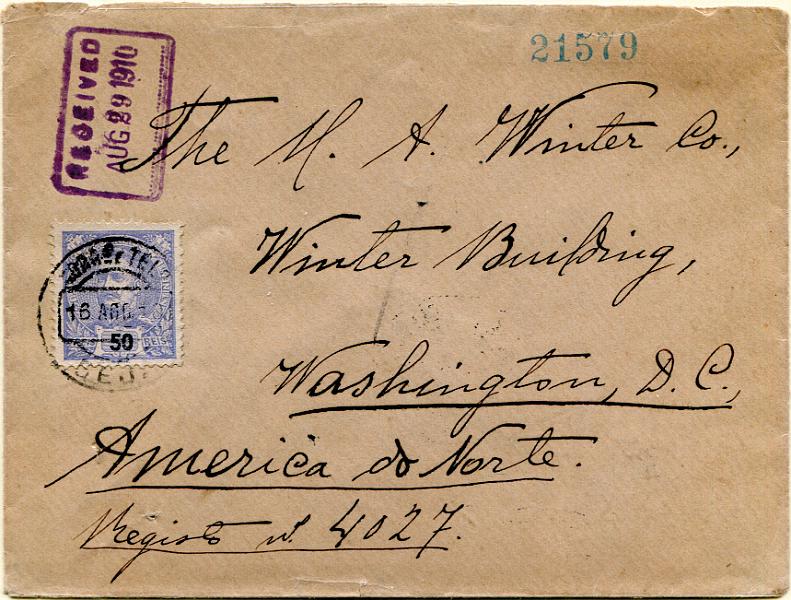 21579
RECEIVED
AUG 29 1910
The M. A. Winter Co.,
Winter Building,
16 AGO
50
REIS
Washington, D. C.,
America do Norte.
Registo nº 4027.